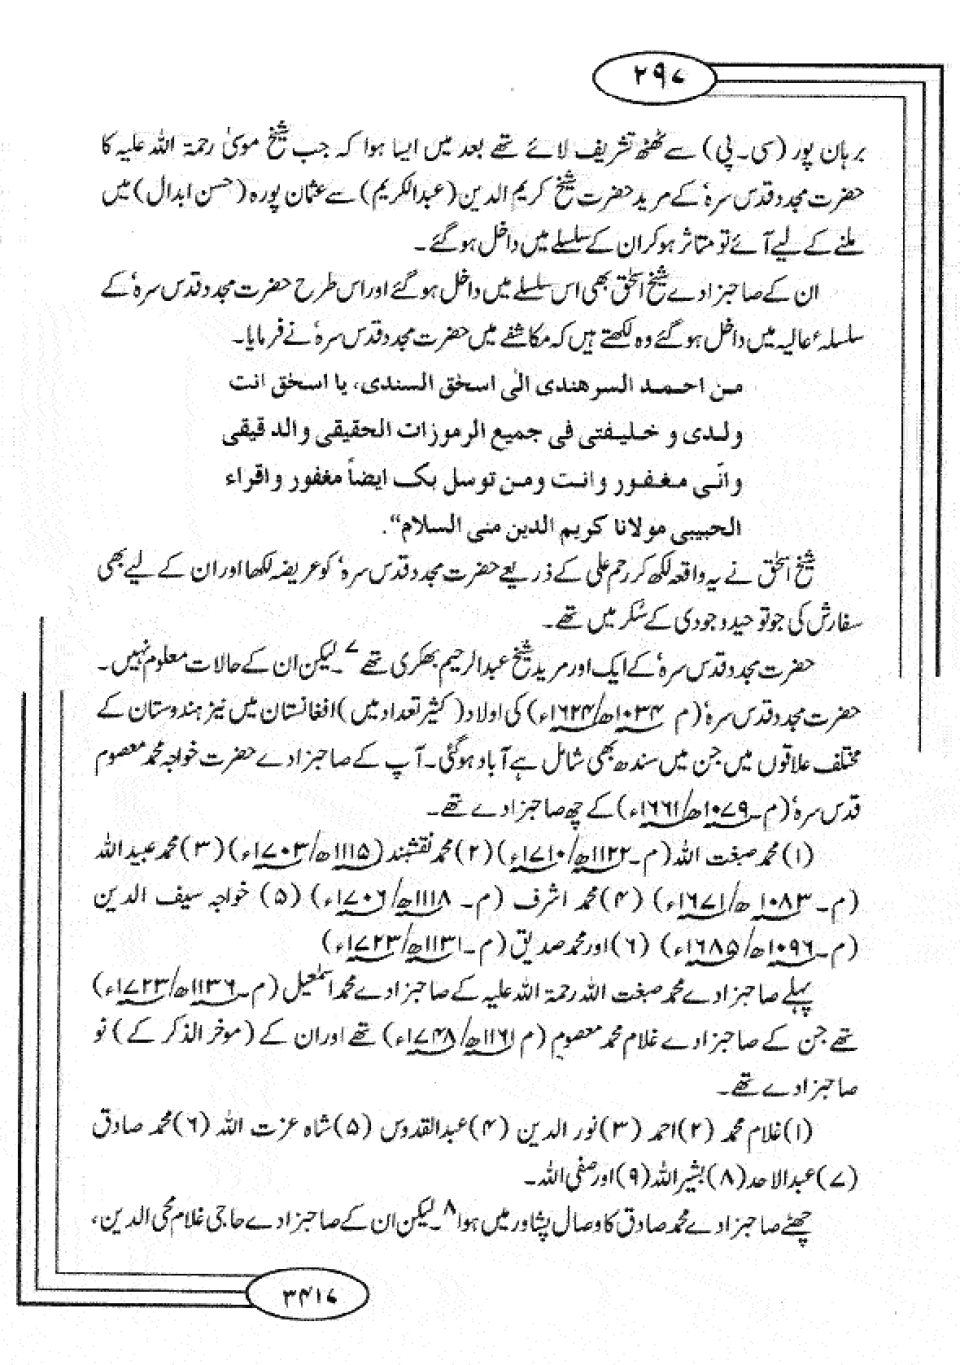 ۲۹۷
برہان پور (سی۔پی) سے ٹھٹھ تشریف لائے تھے بعد میں ایسا ہوا کہ جب شیخ موسیٰ رحمۃ اللہ علیہ کا
حضرت مجدد قدس سرہٗ کے مرید حضرت شیخ کریم الدین (عبدالکریم) سے عثمان پورہ (حسن ابدال) میں
ملنے کے لیے آئے تو متاثر ہوکر ان کے سلسلے میں داخل ہوگئے۔
ان کے صاحبزادے شیخ اسحٰق بھی اس سلسلے میں داخل ہوگئے اور اس طرح حضرت مجدد قدس سرہٗ کے
سلسلۂ عالیہ میں داخل ہوگئے وہ لکھتے ہیں کہ مکاشفے میں حضرت مجدد قدس سرہٗ نے فرمایا۔
من احمد السرھندی الیٰ اسحٰق السندی، یا اسحٰق انت
ولدی و خلیفتی فی جمیع الرموزات الحقیقی والد قیقی
وانّی مغفور وانت ومن توسل بک ایضاً مغفور واقراء
الحبیبی مولانا کریم الدین منی السلام“۔
شیخ اسحٰق نے یہ واقعہ لکھ کر رحم علی کے ذریعے حضرت مجدد قدس سرہٗ کو عریضہ لکھا اور ان کے لیے بھی
سفارش کی جو توحید وجودی کے سُکر میں تھے۔
حضرت مجدد قدس سرہٗ کے ایک اور مرید شیخ عبدالرحیم بھکری تھے ۷۔ لیکن ان کے حالات معلوم نہیں۔
حضرت مجدد قدس سرہٗ (م ۱۰۳۴ھ/۱۶۲۴ء) کی اولاد (کثیر تعداد میں) افغانستان میں نیز ہندوستان کے
مختلف علاقوں میں جن میں سندھ بھی شامل ہے آباد ہوگئی۔ آپ کے صاحبزادے حضرت خواجہ محمد معصوم
قدس سرہٗ (م۔۱۰۷۹ھ/۱۶۶۱ء) کے چھ صاحبزادے تھے۔
(۱) محمد صبغت اللہ (م۔۱۱۲۲ھ/۱۷۱۰ء) (۲) محمد نقشبند (۱۱۱۵ھ/۱۷۰۳ء) (۳) محمد عبید اللہ
(م۔۱۰۸۳ھ/۱۶۷۱ء) (۴) محمد اشرف (م۔۱۱۱۸ھ/۱۷۰۶ء) (۵) خواجہ سیف الدین
(م۔۱۰۹۶ھ/۱۶۸۵ء) (۶) اور محمد صدیق (م۔۱۱۳۱ھ/۱۷۲۳ء)
پہلے صاحبزادے محمد صبغت اللہ رحمۃ اللہ علیہ کے صاحبزادے محمد اسمٰعیل (م۔۱۱۳۶ھ/۱۷۲۳ء)
تھے جن کے صاحبزادے غلام محمد معصوم (م ۱۱۶۱ھ/۱۷۴۸ء) تھے اور ان کے (موخر الذکر کے) نو
صاحبزادے تھے۔
(۱) غلام محمد (۲) احمد (۳) نور الدین (۴) عبدالقدوس (۵) شاہ عزت اللہ (۶) محمد صادق
(۷) عبدالاحد (۸) بشیر اللہ (۹) اور صفی اللہ۔
چھٹے صاحبزادے محمد صادق کا وصال پشاور میں ہوا ۸۔ لیکن ان کے صاحبزادے حاجی غلام محی الدین،
۳۴۱۷